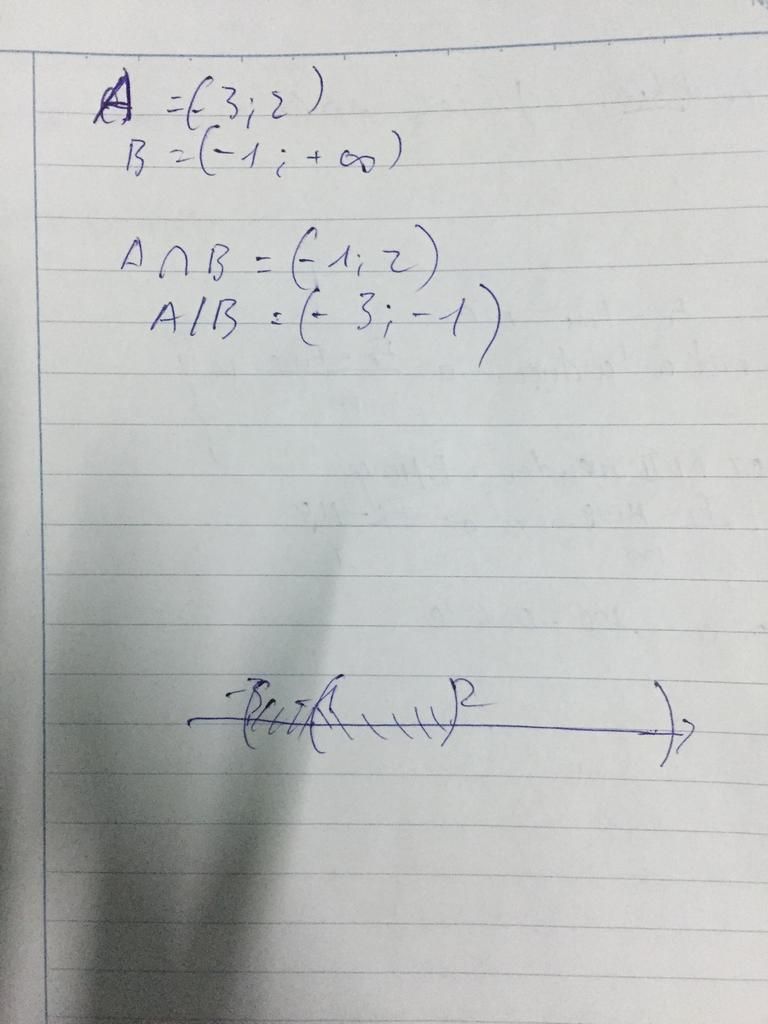 A = (-3; 2)
B = (-1; +∞)
A ∩ B = (-1; 2)
A/B = (-3; -1)
-3 -1 2